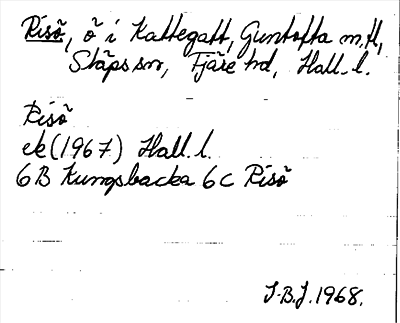 Risö, ö i Kattegatt, Guntofta m.fl,
Släps sn, Fjäre hd, Hall. l.
Risö
ek (1967) Hall. l.
6B Kungsbacka 6c Risö
J.B.J. 1968.